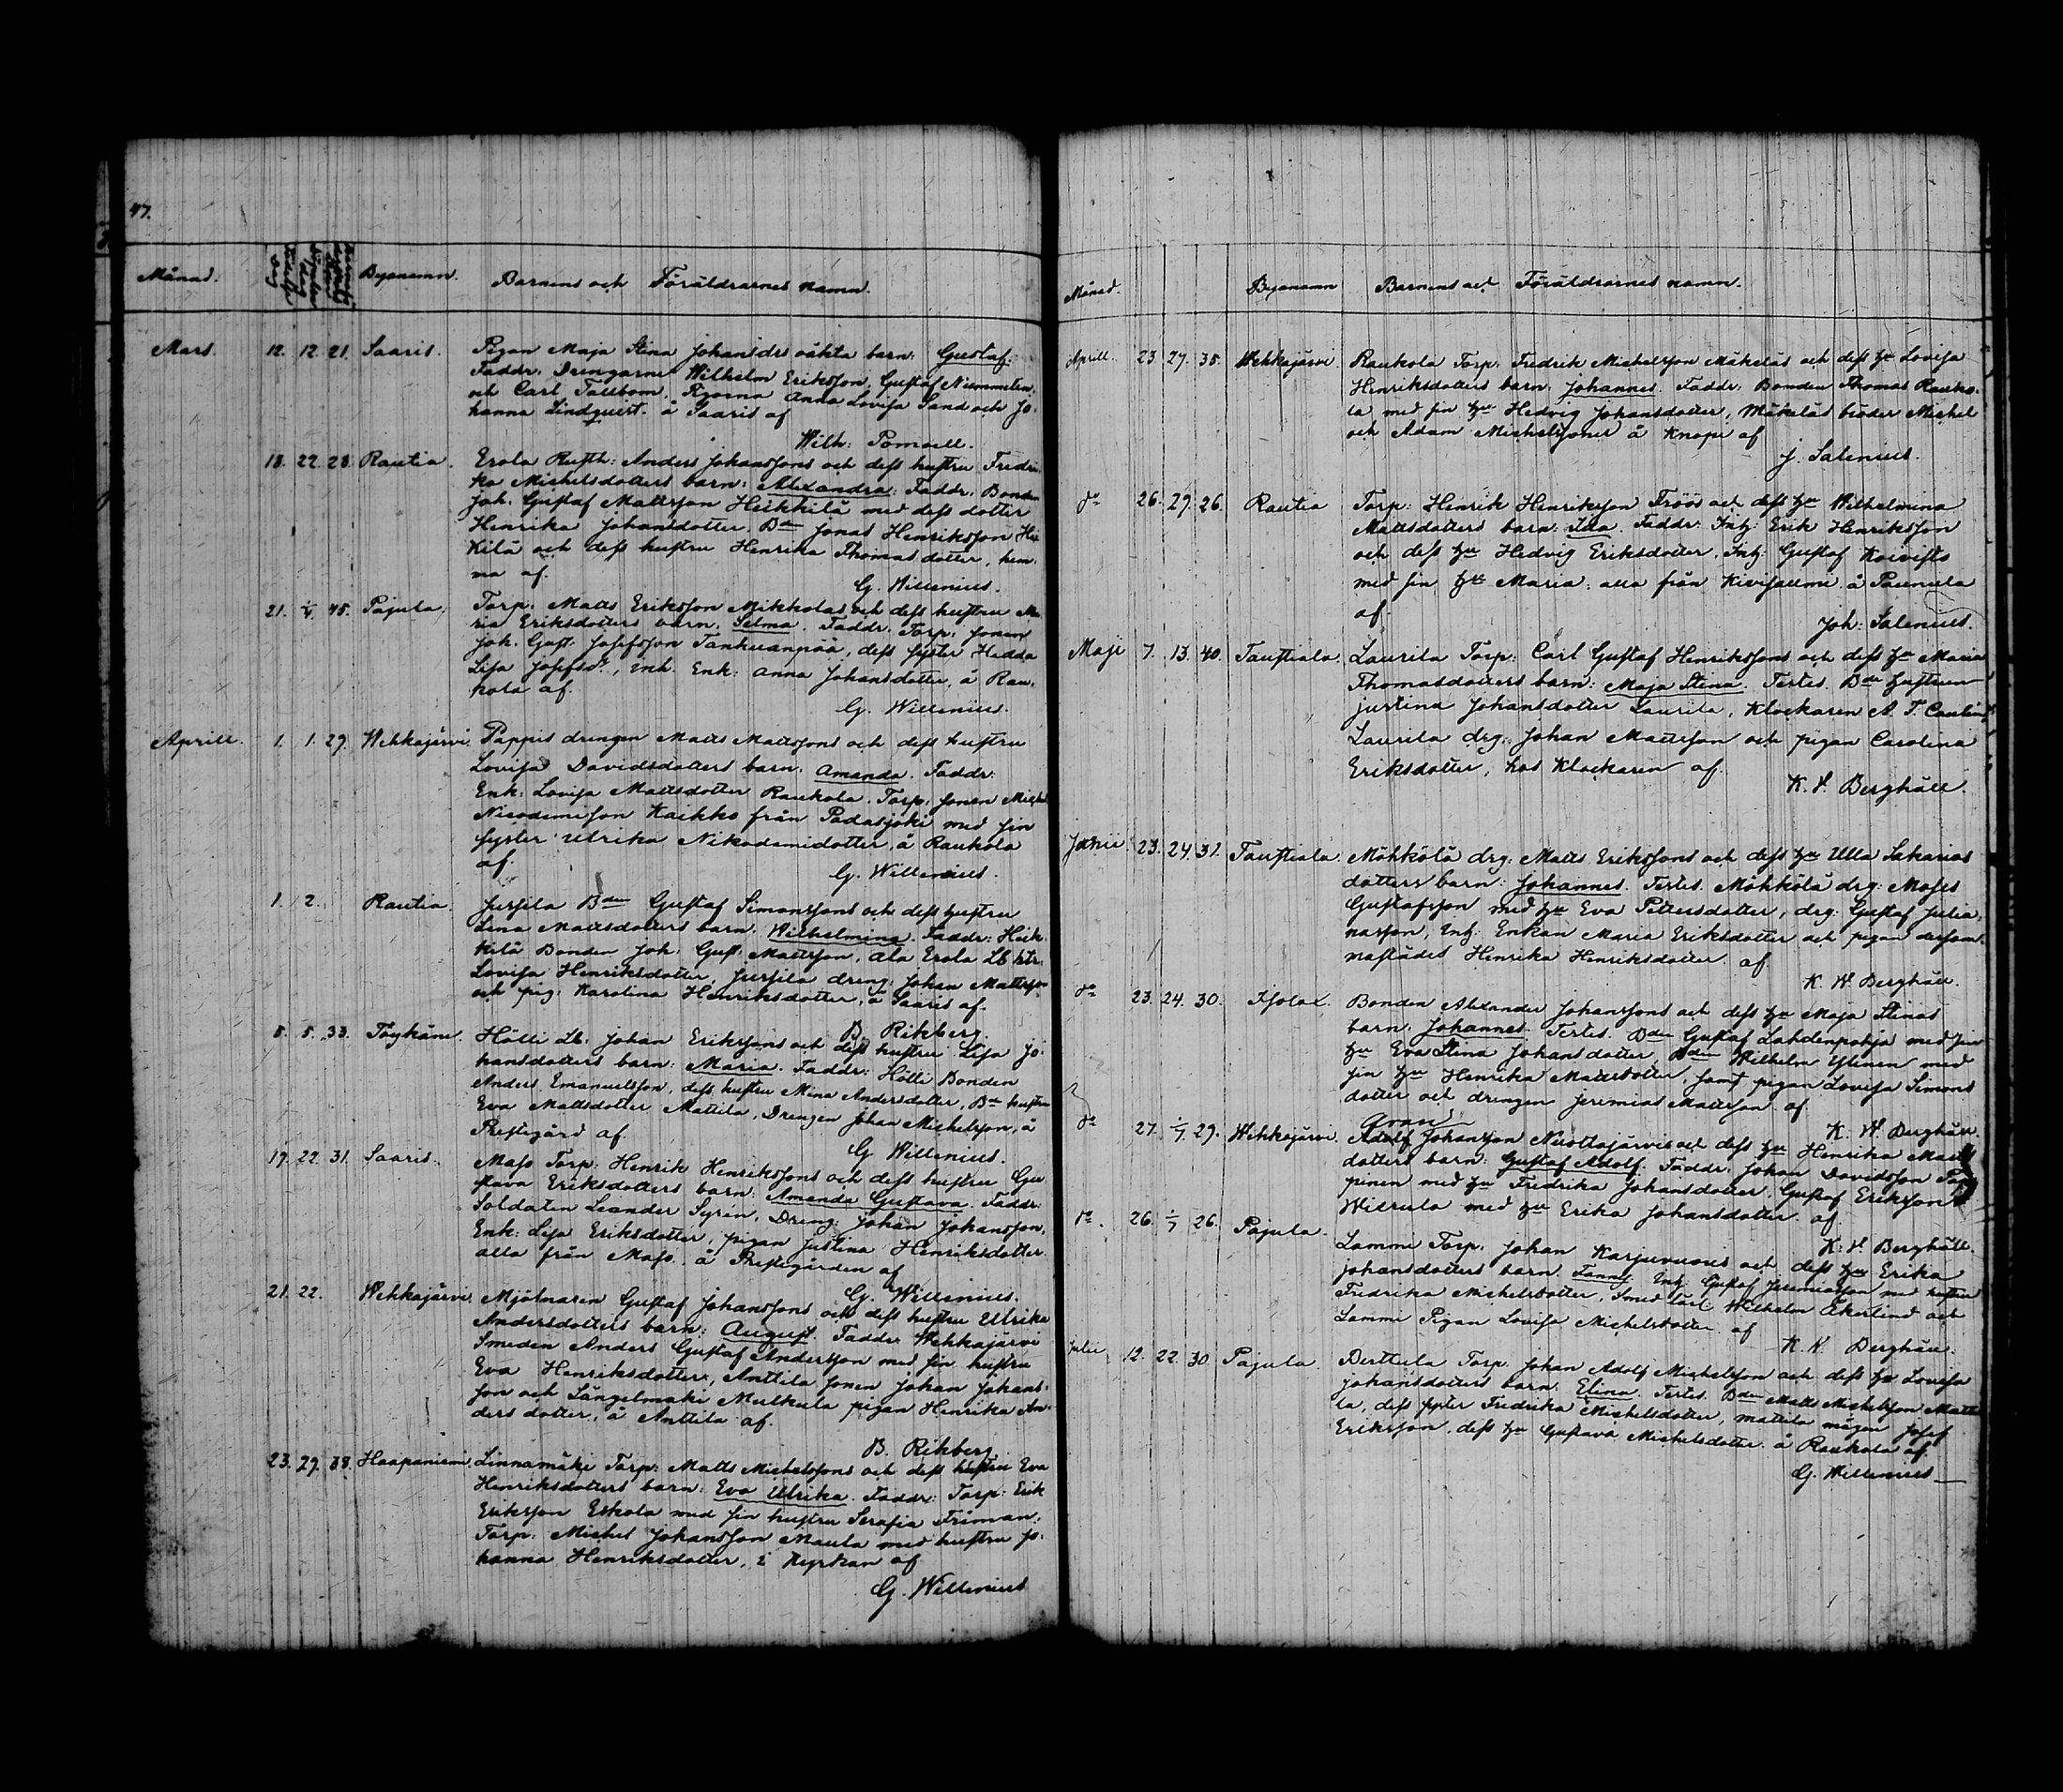 47.
Månad. Byanamn. Barnens och Föräldrarnes namn.
Mars. 12. 12. 21. Saaris. Pigan Maja Stina Johansdrs oäkta barn: Gustaf.
Faddr. Drengarne Wilhelm Eriksson, Gustaf Nummelin,
och Carl Tallbom, Pigorna Anna Lovisa Sand och Jo-
hanna Lindqvist. å Saaris af
Wilh: Pomoell.
18. 22. 28. Rautia. Erola Rusth: Anders Johanssons och dess hustru Fredri-
ka Michelsdotters barn: Alexandra: Faddr: Bonden
Joh. Gustaf Mattsson Heikkilä med dess dotter
Henrika Johansdotter. Bdn Jonas Henriksson Hei
kilä och dess hustru Henrika Thomasdotter, hem-
ma af.
G. Willenius.
21. 1/4 45. Pajula. Torp. Matts Eriksson Mikkolas och dess hustru Ma
ria Eriksdotters barn. Selma. Faddr. Torp: sonen
Joh. Gust: Josefsson Tanhuanpää, dess syster Hedda
Lisa Josefsdr, Enk: Anna Johansdotter, å Rau-
kola af.
G. Willenius.
Aprill. 1. 1. 29. Wehkajärvi. Pappis drengen Matts Mattssons och dess hustru
Lovisa Davidsdotters barn. Amanda. Faddr:
Enk: Lovisa Mattsdotter Raukola. Torp: sonen Michel
Nicodemisson Kaikko från Padasjoki med sin
syster Ulrika Nikodemidotter, å Raukola
af.
G. Willenius.
1. 2. Rautia. Jussila Bdn Gustaf Simonssons och dess hustru
Lena Mattsdotters barn: Wilhelmina. Faddr: Heik-
kilä Bonden Joh: Gust: Mattsson, Ala Erola Lb htr:
Lovisa Henriksdotter Jussila dreng: Johan Mattsson
och pig: Karolina Henriksdotter, å Saaris af.
B. Rikberg.
5. 5. 33. Töykänä. Hölli Lb: Johan Erikssons och dess hustru Lisa Jo-
hansdotters barn: Maria. Faddr: Hölli Bonden
Anders Emanuelsson, dess hustru Mina Andersdotter, Bdn hustru
Eva Mattsdotter Mattila, Drengen Johan Michelsson, å
Prestegård af.
G Willenius.
19. 22. 31. Saaris. Maso Torp: Henrik Henrikssons och dess hustru Gu
stava Eriksdotters barn: Amanda Gustava. Faddr:
Soldaten Leander Syrén, Dreng: Johan Johansson,
Enk: Lisa Eriksdotter, pigan Justina Henriksdotter
alla från Maso. å Prestegården af
G. Willenius.
21. 22. Wehkajärvi. Mjölnaren Gustaf Johanssons och dess hustru Ulrika
Andersdotters barn: August. Faddr. Wehkajärvi
Smeden Anders Gustaf Andersson med sin hustru
Eva Henriksdotter, Anttila sonen Johan Johans-
son och Längelmäki Mulkula pigan Henrika An-
ders dotter, å Anttila af.
B. Rikberg
23. 29. 38. Haapaniemi. Linnamäki Torp: Matts Michelssons och dess hustru Eva
Henriksdotters barn: Eva Ulrika. Faddr: Torp: Erik
Eriksson Eskola med sin hustru Serafia Friman.
Torp: Michel Johansson Maula med hustru Jo-
hanna Henriksdotter, i Kyrkan af
G. Willenius
Månad. Byanamn Barnens och Föräldrarnes namn.
Aprill. 23 27. 35. Wehkajärvi. Raukola Torp. Fredrik Michelsson Mäkeläs och dess hu Lovisa
Henriksdotters barn: Johannes. Faddr. Bonden Thomas Rauko-
la med sin hu Hedvig Johansdotter, Mäkeläs bröder Michel
och Adam Michelssoner å Knopi af
J. Salenius.
do 26. 29. 26. Rautia Torp: Henrik Henriksson Fröös och dess hu Wilhelmina
Mattsdotters barn: Ida. Faddr: Inh: Erik Henriksson
och dess hu Hedvig Eriksdotter, Inh: Gustaf Koivisto
med sin hu Maria: alla från Kivisallmi å Paunula
af.
Joh: Salenius.
Maji 7. 13. 40. Taustiala. Laurila Torp: Carl Gustaf Henrikssons och dess hu Maria
Thomasdotters barn: Maja Stina. Testes. Bdn hustrun
Justina Johansdotter Laurila, Klockaren A. F.
Laurila drg: Johan Mattsson och pigan Carolina
Eriksdotter, hos Klockaren af.
K. W. Berghäll.
Junii 23. 24. 31. Taustiala. Möhkölä drg: Matts Erikssons och dess hu Ulla Sakarias
dotters barn: Johannes. Testes. Möhkölä drg: Moses
Gustafsson med hu Eva Pettersdotter, drg: Gustaf Julia-
nasson, Inh: Enkan Maria Eriksdotter och pigan dersam-
mastädes Henrika Henriksdotter. af.
K. W Berghäll.
do 23. 24. 30. Bonden Alexander Johanssons och dess hu Maja Stinas
barn. Johannes. Testes. Bdn Gustaf Lahdenpohja med sin
hu Eva Stina Johansdotter, Bdn Wilhelm Ylinen med
sin hu Henrika Mattsdotter samt pigan Lovisa Simons
dotter och drengen Jeremias Mattsson. af.
K. W. Berghäll.
do 27. 1/7. 29. Wehkajärvi. Adolf Johansson Nuottajärvis och dess hu Henrika Matts
dotters barn: Gustaf Adolf. Faddr. Johan Davidsson
pinen med hu Fredrika Johansdotter. Gustaf Eriksson
med hu Erika Johansdotter. af.
K. W. Berghäll.
do. 26. 1/7 26. Pajula. Lammi Torp. Johan Karjuvuoris och dess hu Erika
Johansdotters barn. Fanny. Inh. Gustaf Jeremiasson med hustru
Fredrika Michelsdotter, Smed Carl Wilhelm Ekerlund och
Lammi Pigan Lovisa Michelsdotter. af
K. W. Berghäll.
Julii 12. 22. 30 Pajula. Perttula Torp. Johan Adolf Michelsson och dess hu Lovisa
Johansdotters barn. Elina. Testes. Bdn Matts Michelsson Matti
la, dess syster Fredrika Michelsdotter, Mattila mågen Josef
Eriksson, dess hu Gustava Michelsdotter. å Raukola af.
G. Willenius